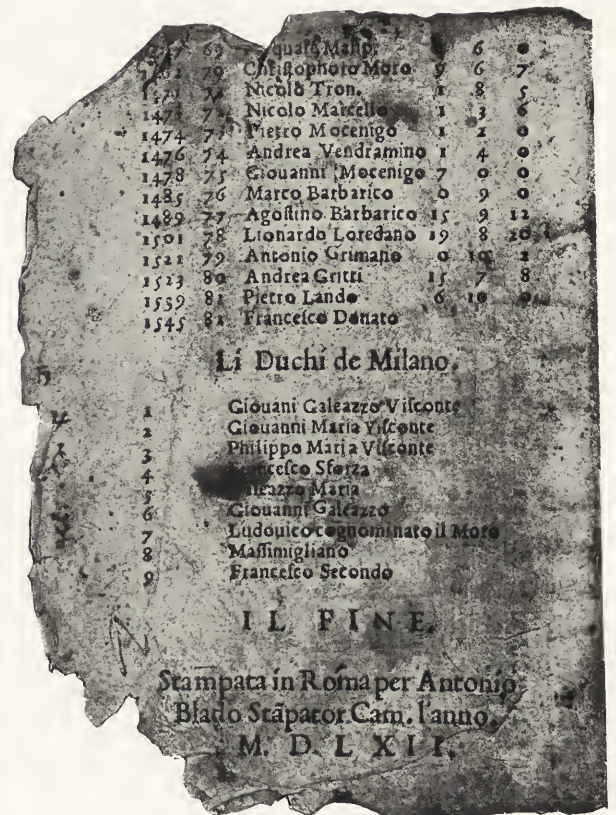 69 Malip. 6 0
70 Christophoro Moro 9 6 7
Nicolo Tron. 1 8 5
1473 Nicolo Marcello 1 3 6
1474 73 Pietro Mocenigo 1 2 0
1476 74 Andrea Vendramino 1 4 0
1478 75 Giouanni Mocenigo 7 0 0
1485 76 Marco Barbarico 0 9 0
1489 77 Agoſtino Barbarico 15 9 12
1501 78 Lionardo Loredano 19 8 20
1521 79 Antonio Grimano 0 10 2
1523 80 Andrea Gritti 15 7 8
1539 81 Pietro Lando 6 10 0
1545 82 Franceſco Donato
Li Duchi de Milano.
1 Giouani Galeazzo Viſconte
2 Giouanni Maria Viſconte
3 Philippo Maria Viſconte
4 Franceſco Sforza
5 Galeazzo Maria
6 Giouanni Galeazzo
7 Ludouico cognominato il Moro
8 Maſſimigliano
9 Franceſco Secondo
IL FINE.
Stampata in Roma per Antonio
Blado Stãpator Cam. l'anno.
M. D. L X I I.